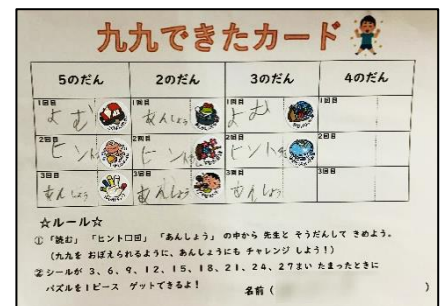 九九できたカード
5のだん 2のだん 3のだん 4のだん
1回目 よむ 1回目 あんしょう 1回目 よむ 1回目
2回目 ヒント 2回目 ヒント 2回目 ヒント 2回目
3回目 あんしょう 3回目 あんしょう 3回目 あんしょう 3回目
☆ルール☆
①「読む」「ヒント□回」「あんしょう」の中から 先生と そうだんして きめよう。
(九九を おぼえられるように、あんしょうにも チャレンジ しよう!)
②シールが 3、6、9、12、15、18、21、24、27まい たまったときに
パズルを1ピース ゲットできるよ!
名前( )